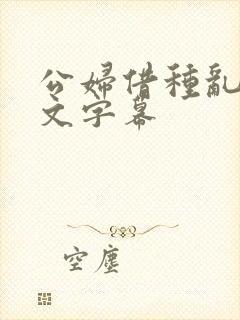 公婦借種亂
文字幕
空塵